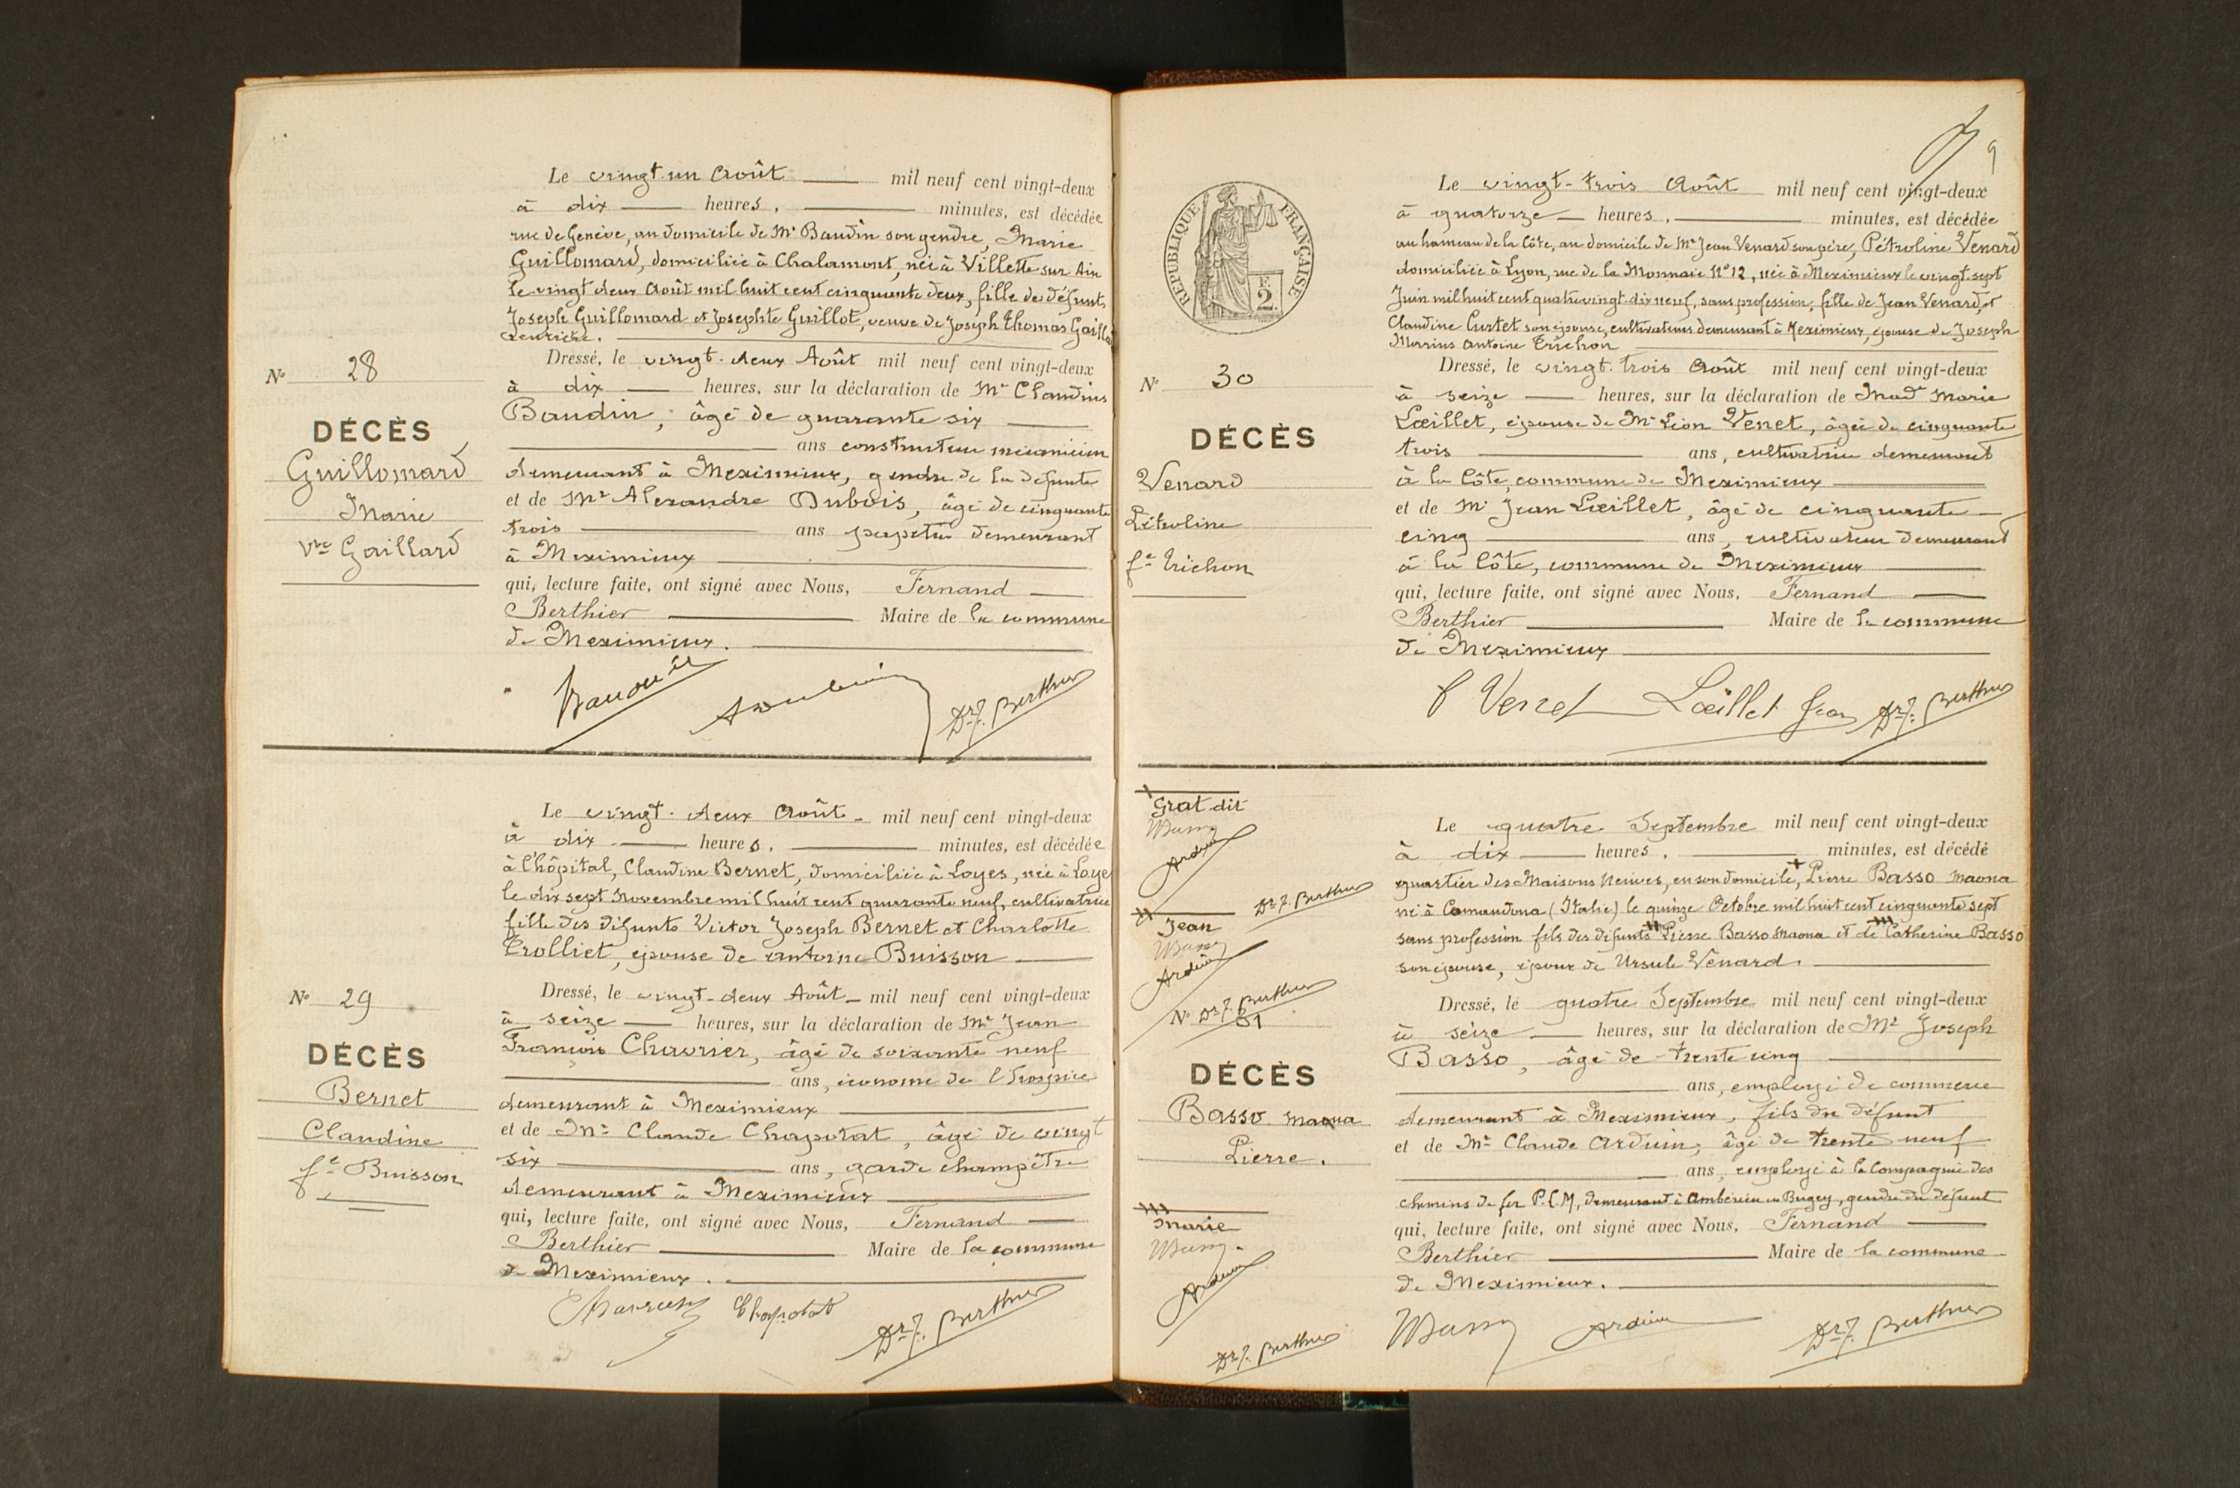 Le vingt-un Août mil neuf cent vingt-deux
à dix heures, minutes, est décédée
rue de Genève, au domicile de Mr Baudin son gendre, Marie
Guillomard, domiciliée à Chalamont, née à Villette sur Ain
le vingt deux Août mil huit cent cinquante deux, fille de défunts
Joseph Guillomard et Josephte Guillot, veuve de Joseph Thomas Gaillard
rentière.
No 28
DÉCÈS
Guillomard
Marie
Vve Gaillard
Dressé, le vingt-deux Août mil neuf cent vingt-deux
à dix heures, sur la déclaration de Mr Claudius
Baudin, âgé de quarante six
ans constructeur mécanicien
demeurant à Meximieux, gendre de la défunte
et de Mr Alexandre Dubois, âgé de cinquante
trois ans demeurant
à Meximieux
qui, lecture faite, ont signé avec Nous, Fernand
Berthier Maire de la commune
de Meximieux.
Dr F. Berthier
Le vingt-deux Août mil neuf cent vingt-deux
à dix heures, minutes, est décédée
à l'hôpital, Claudine Bernet, domiciliée à Loyes, née à Loyes
le dix sept Novembre mil huit cent quarante neuf, cultivatrice
fille des défunts Victor Joseph Bernet et Charlotte
Trolliet, épouse de Antoine Buisson
No 29
DÉCÈS
Bernet
Claudine
fe Buisson
Dressé, le vingt-deux Août mil neuf cent vingt-deux
à seize heures, sur la déclaration de Mr Jean
François Chavrier, âgé de soixante neuf
ans, économe de l'hospice
demeurant à Meximieux
et de Mr Claude Chapotat, âgé de vingt
six ans, garde champêtre
demeurant à Meximieux
qui, lecture faite, ont signé avec Nous, Fernand
Berthier Maire de la commune
de Meximieux.
Chavrier Chapotat Dr F. Berthier
9
RÉPUBLIQUE FRANÇAISE
2
Le vingt-trois Août mil neuf cent vingt-deux
à quatorze heures, minutes, est décédée
au hameau de la Côte, au domicile de Mr Jean Venard son père, Pétroline Venard
domiciliée à Lyon, rue de la Monnaie No 12, née à Meximieux le vingt sept
Juin mil huit cent quatre vingt dix neuf, sans profession, fille de Jean Venard, et
Claudine Curtet son épouse, cultivateurs demeurant à Meximieux, épouse de Joseph
Marius Antoine Trichon
No 30
DÉCÈS
Venard
Pétroline
fe Trichon
Dressé, le vingt-trois Août mil neuf cent vingt-deux
à seize heures, sur la déclaration de Made Marie
Lœillet, épouse de Mr Léon Venet, âgée de cinquante
trois ans, cultivatrice demeurant
à la Côte, commune de Meximieux
et de Mr Jean Lœillet, âgé de cinquante
cinq ans, cultivateur demeurant
à la Côte, commune de Meximieux
qui, lecture faite, ont signé avec Nous, Fernand
Berthier Maire de la commune
de Meximieux
Venet Lœillet Jean Dr F. Berthier
Grat dit
Arduin
Dr F. Berthier
Jean
Arduin
Dr F. Berthier
Le quatre Septembre mil neuf cent vingt-deux
à dix heures, minutes, est décédé
quartier des Maisons Neuves, en son domicile, Pierre Basso Maona
né à Camandona (Italie) le quinze Octobre mil huit cent cinquante sept
sans profession fils des défunts Pierre Basso Maona et de Catherine Basso
son épouse, époux de Ursule Vénard.
No 31
DÉCÈS
Basso Maona
Pierre.
Marie
Arduin
Dr F. Berthier
Dressé, le quatre Septembre mil neuf cent vingt-deux
à seize heures, sur la déclaration de Mr Joseph
Basso, âgé de trente cinq
ans, employé de commerce
demeurant à Meximieux, fils du défunt
et de Mr Claude Arduin, âgé de trente neuf
ans, employé à la Compagnie des
chemins de fer P.L.M, demeurant à Ambérieu en Bugey, gendre du défunt
qui, lecture faite, ont signé avec Nous, Fernand
Berthier Maire de la commune
de Meximieux.
Arduin Dr F. Berthier